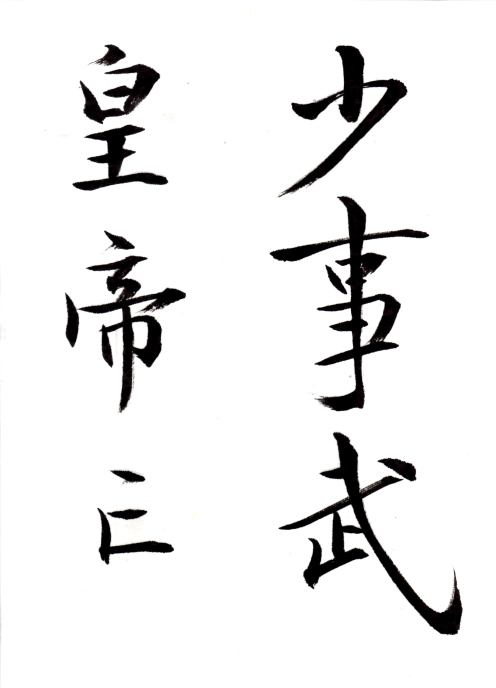 少事武
皇帝亡